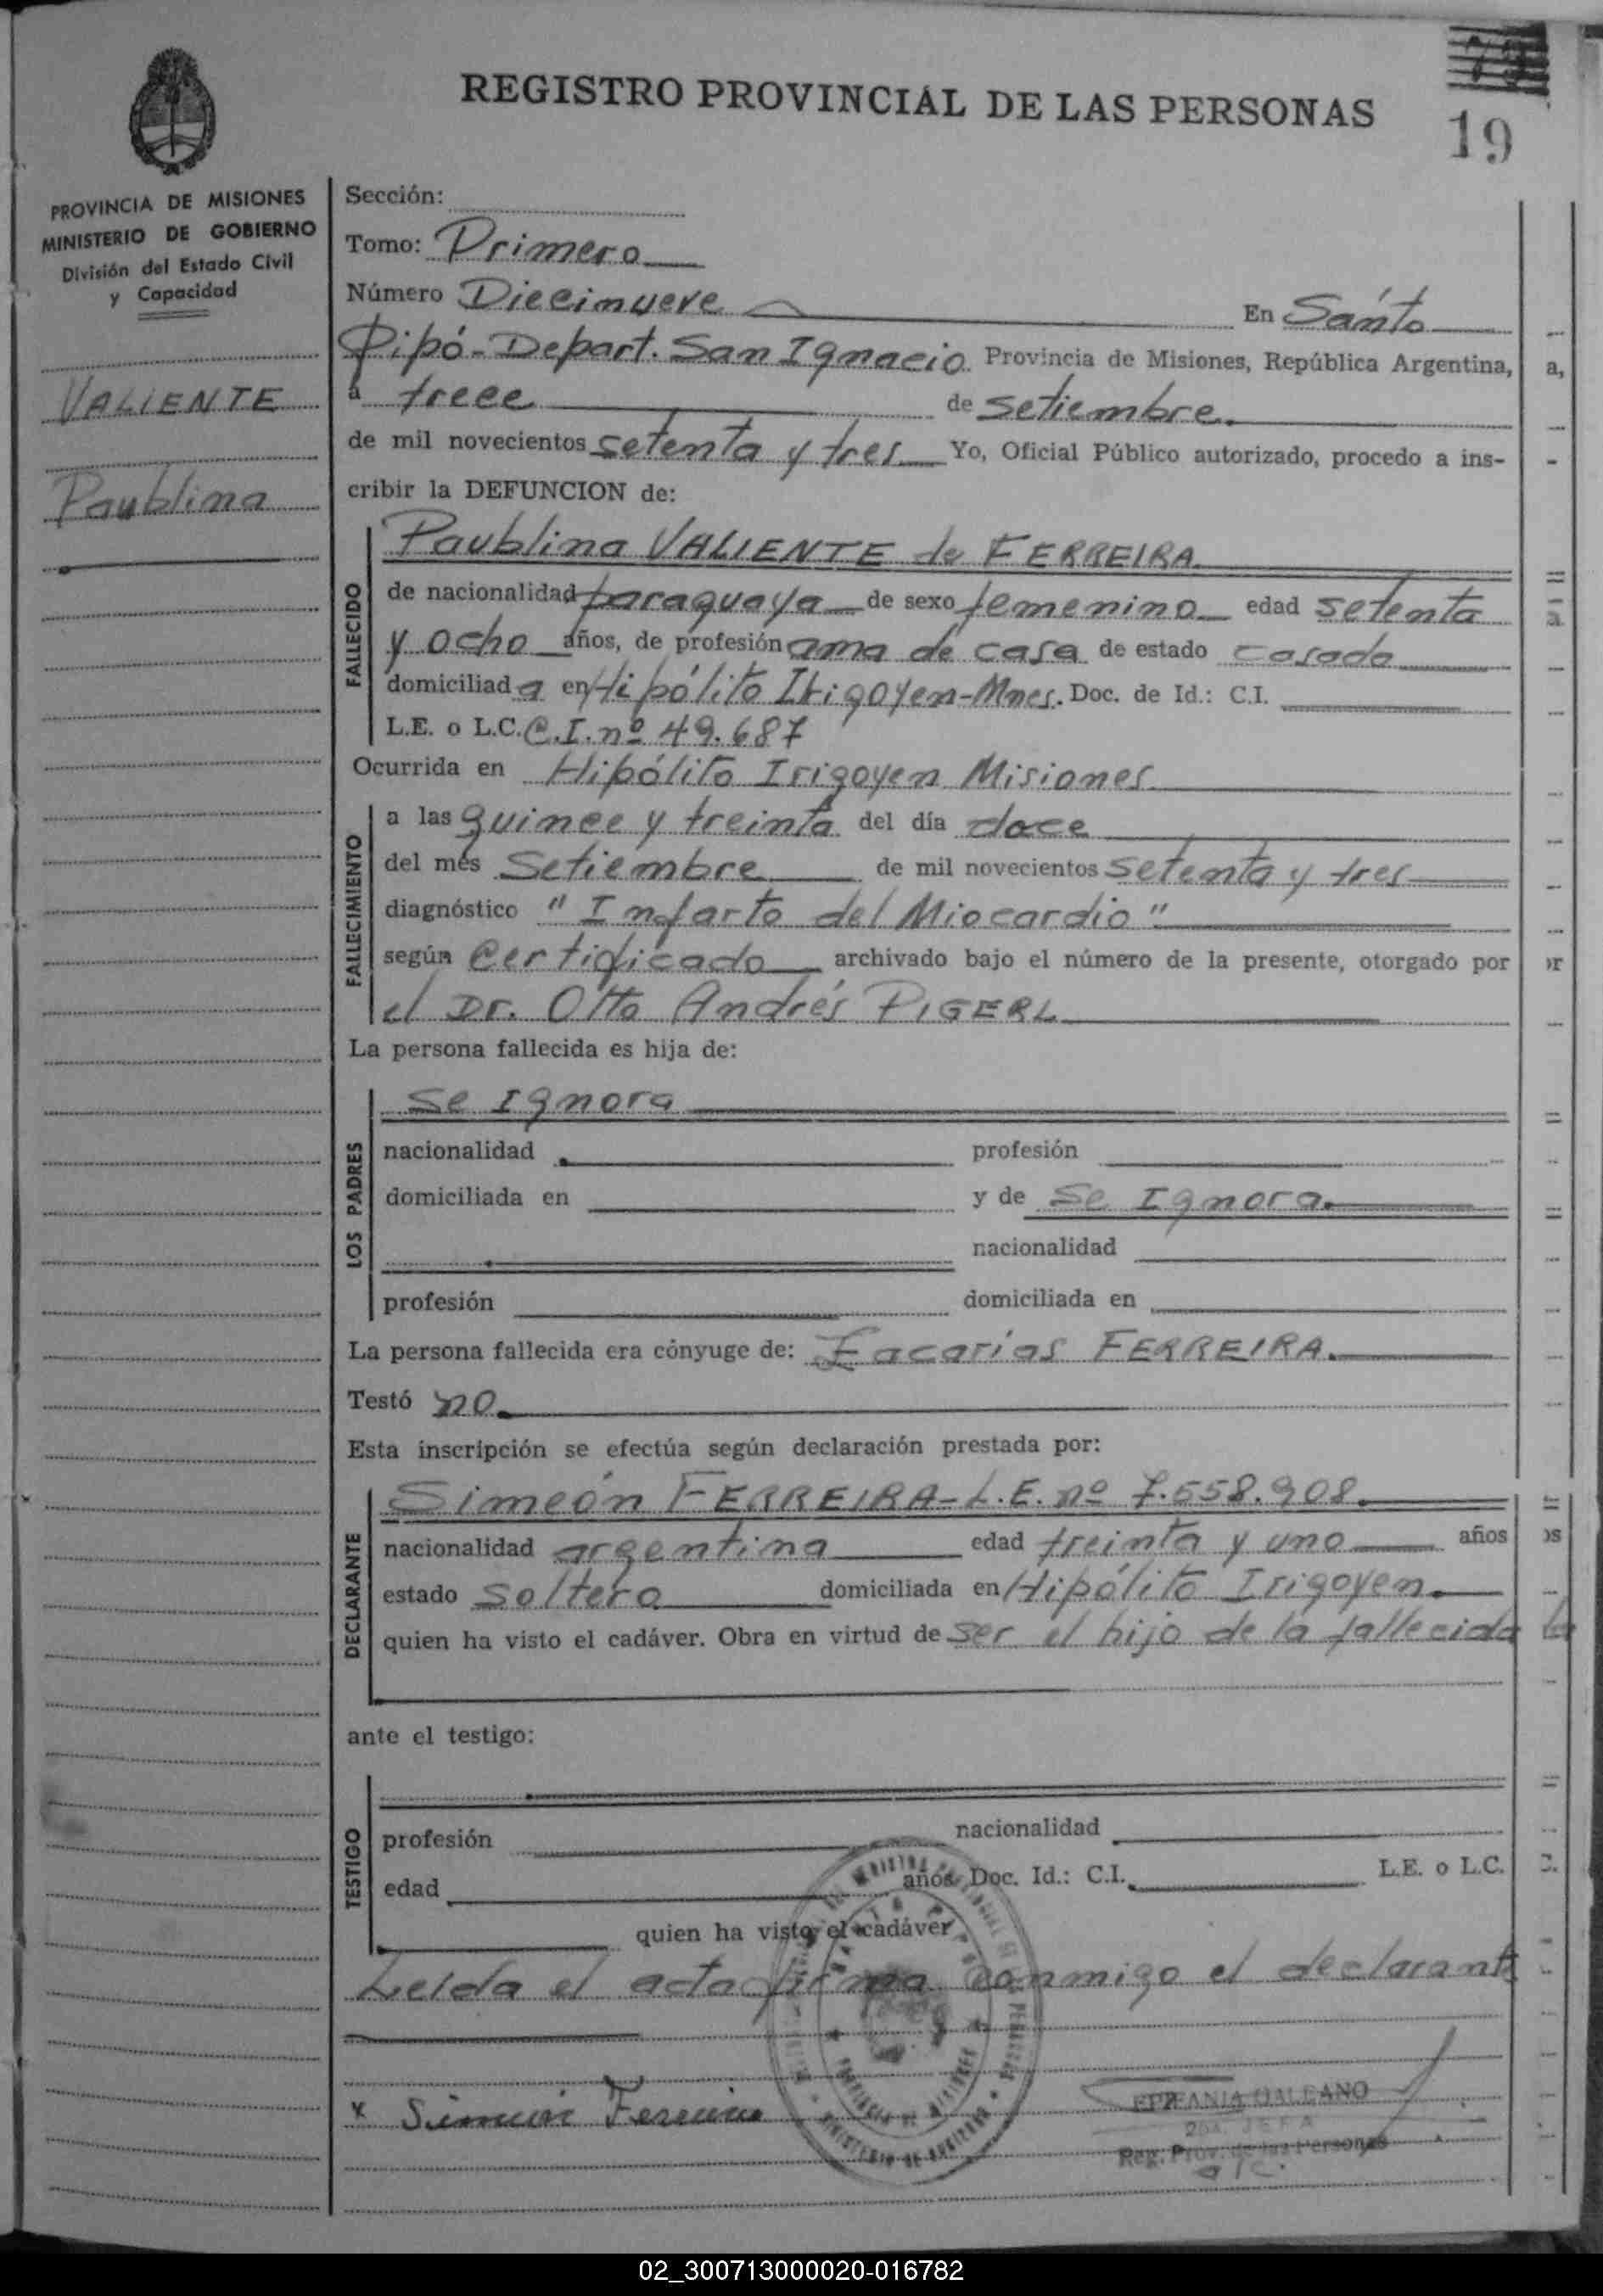 REGISTRO PROVINCIAL DE LAS PERSONAS
19
PROVINCIA DE MISIONES
MINISTERIO DE GOBIERNO
División del Estado Civil
y Capacidad
VALIENTE
Paublina
Sección:
Tomo: Primero
Número Diecinueve En Santo
Pipó - Depart. San Ignacio Provincia de Misiones, República Argentina,
a trece de setiembre
de mil novecientos setenta y tres Yo, Oficial Público autorizado, procedo a ins-
cribir la DEFUNCION de:
FALLECIDO
Paublina VALIENTE de FERREIRA
de nacionalidad paraguaya de sexo femenino edad setenta
y ocho años, de profesión ama de casa de estado casada
domiciliada en Hipólito Irigoyen-Mnes. Doc. de Id.: C.I.
L.E. o L.C. C.I. nº 49.687
Ocurrida en Hipólito Irigoyen Misiones
FALLECIMIENTO
a las quince y treinta del día doce
del mes Setiembre de mil novecientos setenta y tres
diagnóstico "Infarto del Miocardio"
según Certificado archivado bajo el número de la presente, otorgado por
el Dr. Otto Andrés PIGERL
La persona fallecida es hija de:
LOS PADRES
Se Ignora
nacionalidad profesión
domiciliada en y de Se Ignora.
nacionalidad
profesión domiciliada en
La persona fallecida era cónyuge de: Zacarías FERREIRA.
Testó no.
Esta inscripción se efectúa según declaración prestada por:
DECLARANTE
Simeón FERREIRA - L.E. nº 7.558.908.
nacionalidad argentina edad treinta y uno años
estado soltero domiciliada en Hipólito Irigoyen.
quien ha visto el cadáver. Obra en virtud de ser el hijo de la fallecida
ante el testigo:
TESTIGO
profesión nacionalidad
edad años Doc. Id.: C.I. L.E. o L.C.
quien ha visto el cadáver
Leída el acta firma conmigo el declarante
x Simeón Ferreira
EPIFANIA GALEANO
JEFA
Reg. Prov. de las Personas
a/c.
MINISTERIO DE GOBIERNO
PROVINCIA DE MISIONES
02_300713000020-016782